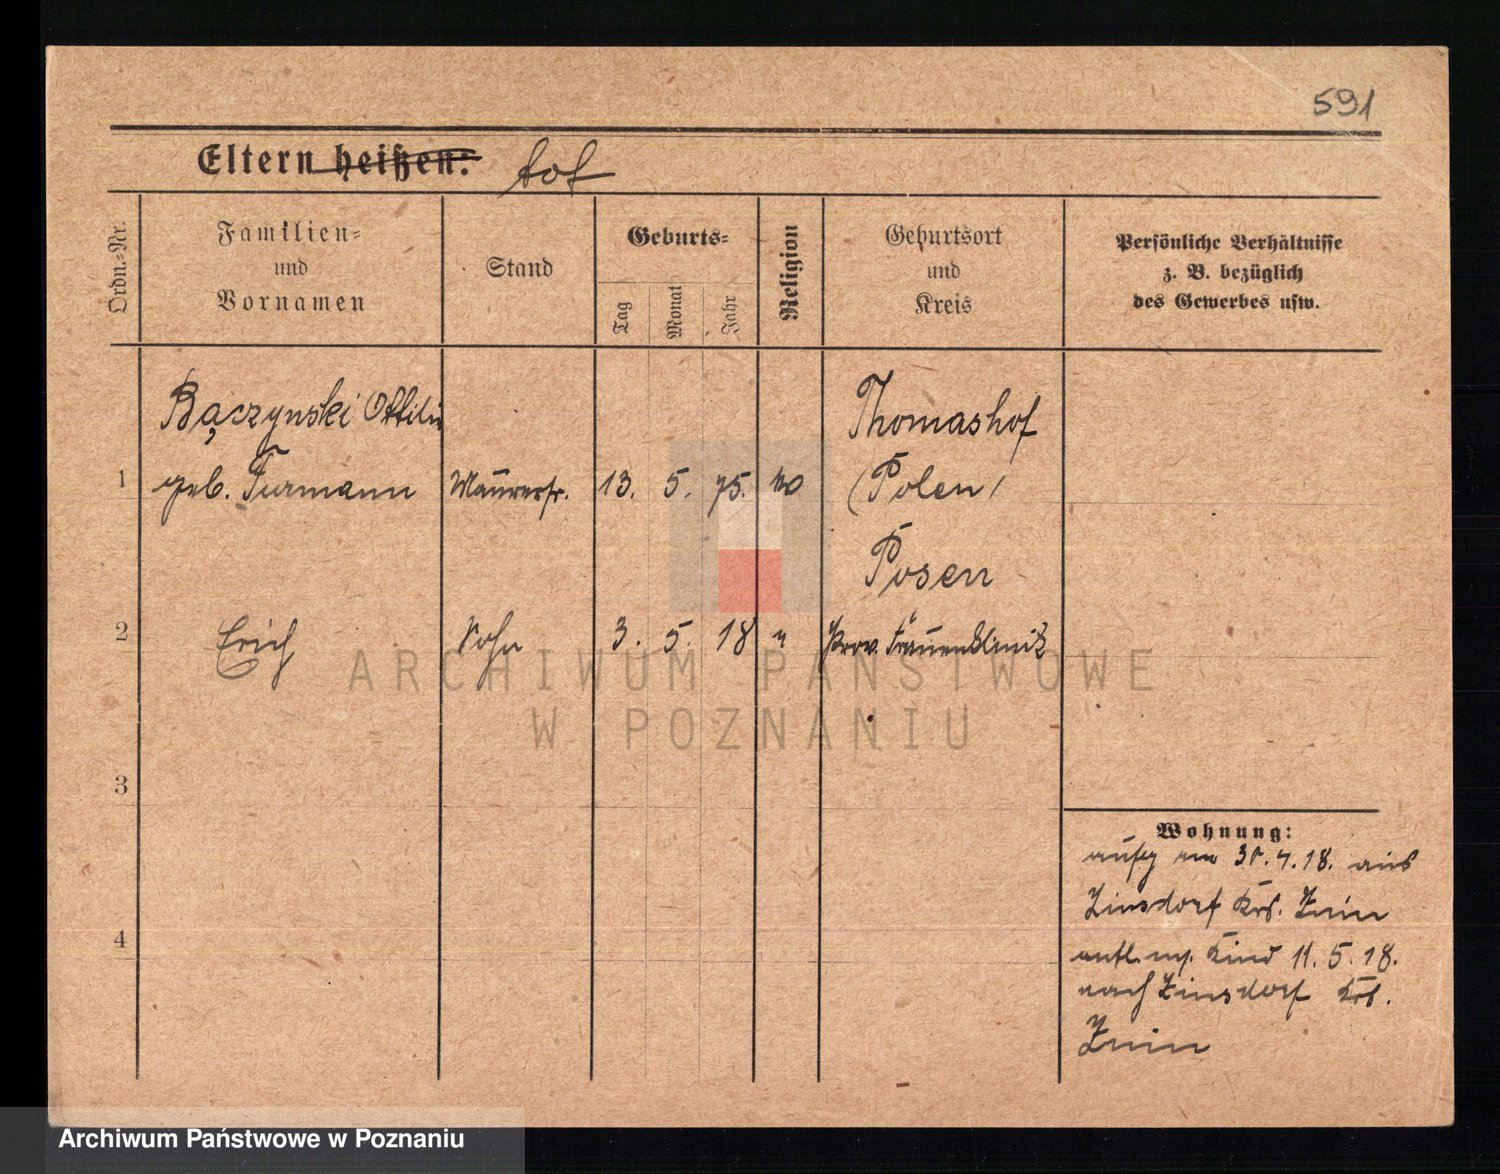 591
Eltern heißen: tot
Ordn.-Nr.
Familien-
und
Vornamen
Stand
Geburts-
Tag
Monat
Jahr
Religion
Geburtsort
und
Kreis
Persönliche Verhältnisse
z. B. bezüglich
des Gewerbes usw.
Bączynski Ottilie
Thomashof
1 geb. Furmann Maurerfr. 13. 5. 75. (Polen)
Posen
2 Erich Sohn 3. 5. 18 " Prov. Frauenklinik
3
4
Wohnung:
am 30.4.18. aus
Zinsdorf Krs. Znin
entl. m. Kind 11.5.18.
nach Zinsdorf Krs.
Znin
ARCHIWUM PAŃSTWOWE
W POZNANIU
Archiwum Państwowe w Poznaniu